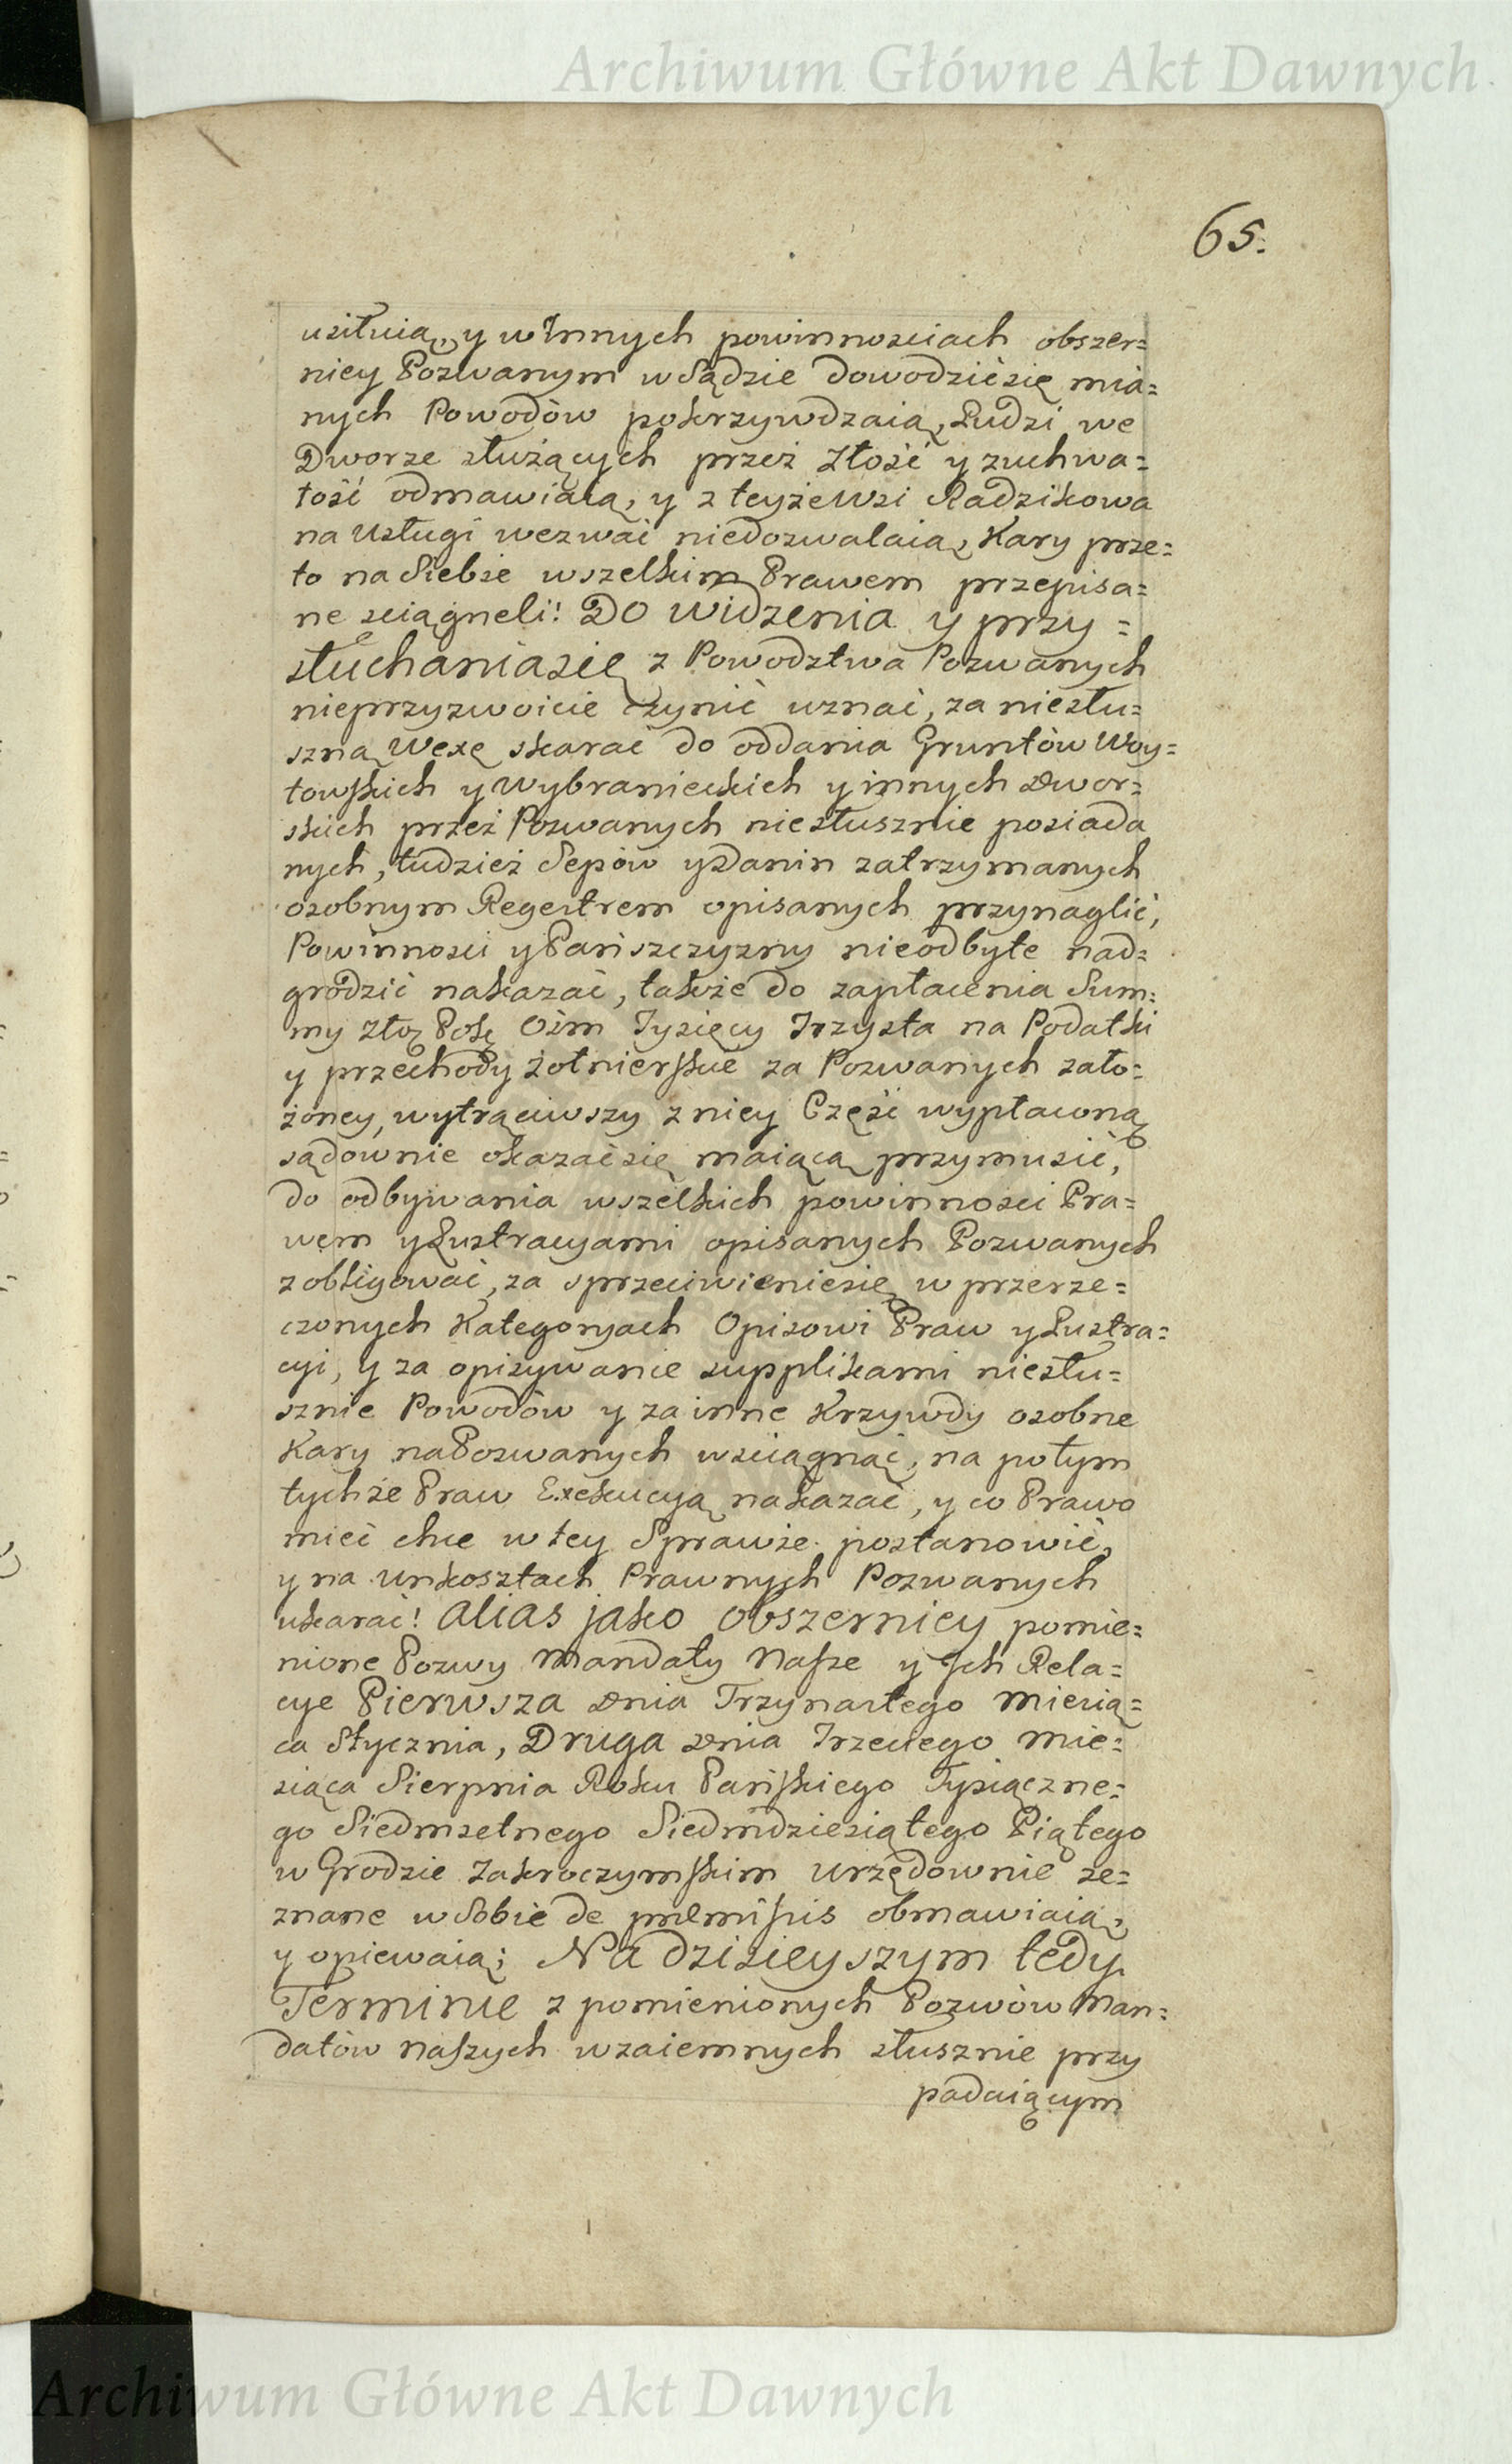 Archiwum Główne Akt Dawnych
65.
usiłuią, y w Innych powinnosciach obszer=
niey Pozwanym w Sądzie dowodzić się mia=
nych Powodów pokrzywdzaią, Ludzi we
Dworze służących przez złość y zuchwa=
łość odmawiaią, y z teyże Wsi Radzikowa
na Usługi wezwać niedozwalaią, Kary prze=
to na Siebie wszelkim Prawem przepisa=
ne sciągneli! Do widzenia y przy=
słuchania się z Powodztwa Pozwanych
nieprzyzwoicie czynić uznać, za niesłu=
szną Wexę skarać do oddania Gruntów Woy=
towskich y Wybranieckich y innych Dwor=
skich przez Pozwanych niesłusznie posiada
nych, tudzież Sepów y Danin zatrzymanych
osobnym Regestrem opisanych przynaglić,
Powinnosci y Pańszczyzny nieodbyłe nad=
grodzić nakazać, także do zapłacenia Sum=
my Złoł Polł Ośm Tysięcy Trzysta na Podatki
y przechody żołnierskie za Pozwanych zało=
żoney, wytrąciwszy z niey Część wypłaconą
sądownie okazać się maiącą przymusić,
do odbywania wszelkich powinnosci Pra=
wem y Lustracyami opisanych Pozwanych
zobligować, za sprzeciwienie się w przerze=
czonych Kategoryach Opisowi Praw y Lustra=
cyi, y za opisywanie supplikami niesłu=
sznie Powodów y za inne Krzywdy osobne
Kary na Pozwanych wsciągnąć, na potym
tychże Praw Exekucyą nakazać, y co Prawo
mieć chce w tey Sprawie postanowić,
y na Unkosztach Prawnych Pozwanych
ukarać! Alias jako obszerniey pomie=
nione Pozwy Mandaty Nasze y Jch Rela=
cye Pierwsza Dnia Trzynastego Miesią=
ca Stycznia, Druga Dnia Trzeciego Mie=
siąca Sierpnia Roku Pańskiego Tysiączne=
go Siedmsetnego Siedmdziesiątego Piątego
w Grodzie Zakroczymskim urzędownie ze=
znane w Sobie de præmissis obmawiaią,
y opiewaią; Na dzisieyszym tedy
Terminie z pomienionych Pozwów Man=
datów naszych wzaiemnych słusznie przy
padaiącym
Archiwum Główne Akt Dawnych